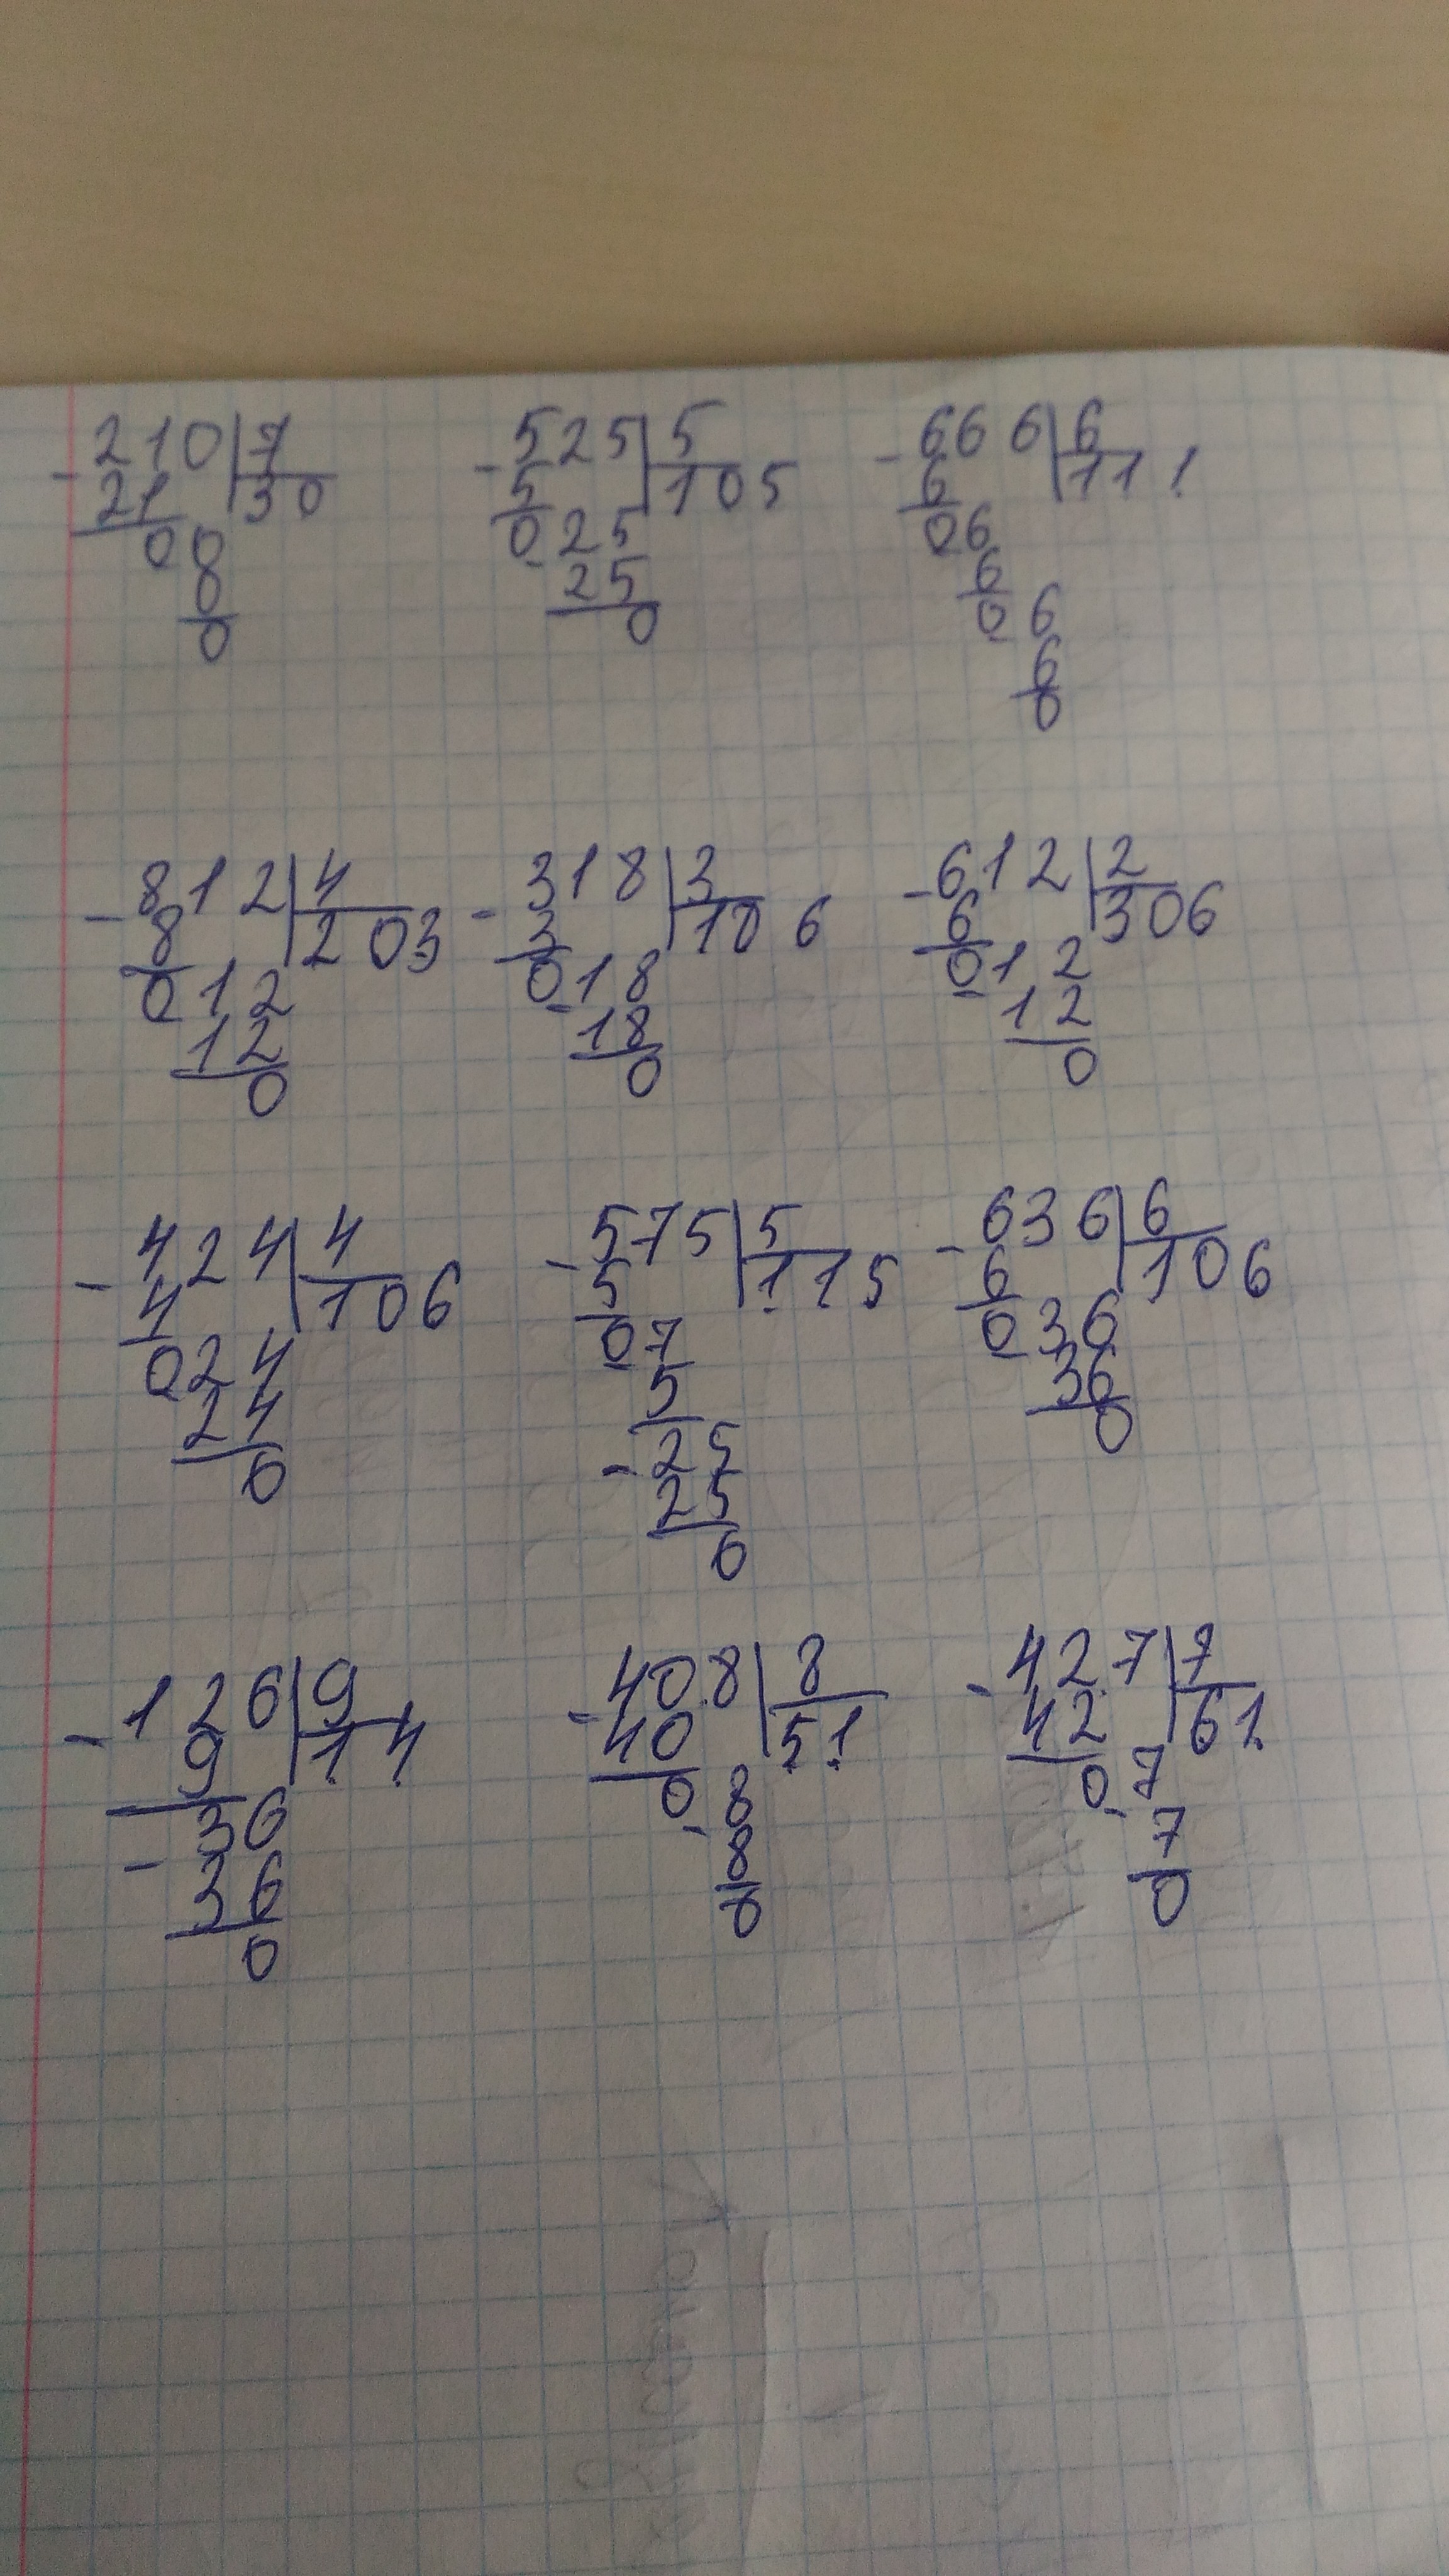 -210|7 -525|5 -666|6
21 30 5 105 6 111
00 025 06
0 25 6
0 0 06
6
0
-812|4 -318|3 -612|2
8 203 3 106 6 306
012 018 012
12 18 12
0 0 0
-424|4 -575|5 -636|6
4 106 5 115 6 106
024 07 036
24 5 36
0 -25 0
25
0
-126|9 -408|8 -427|7
9 14 40 51 42 61
-36 08 07
36 8 7
0 0 0